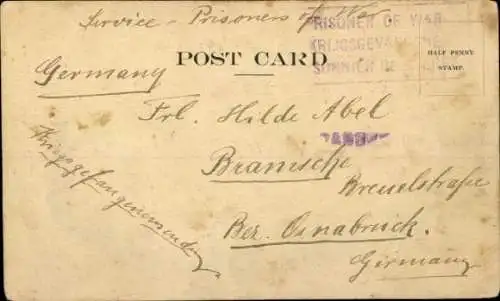 Service - Prisoners of War
PRISONER OF WAR
KRIJGSGEVANGENE
POST CARD
HALF PENNY
STAMP.
Germany
Frl. Hilde Abel
PASSED
Bramsche
Kriegsgefangenensendung
Breuelstraße
Bez. Osnabruck.
Girmany